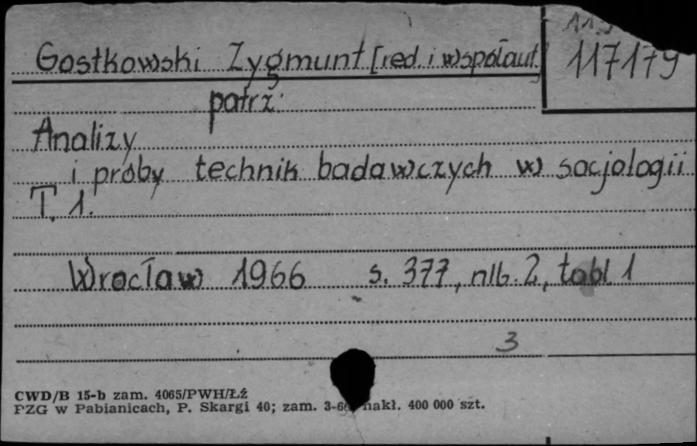 Gostkowski Zygmunt [red. i współaut.
117179
patrz:
Analizy
i próby technik badawczych w socjologii
T. 1.
Wrocław 1966 s. 377, nlb. 2, tabl 1
3
CWD/B 15-b zam. 4065/PWH/Łź
PZG w Pabianicach, P. Skargi 40; zam. nakł. 400 000 szt.